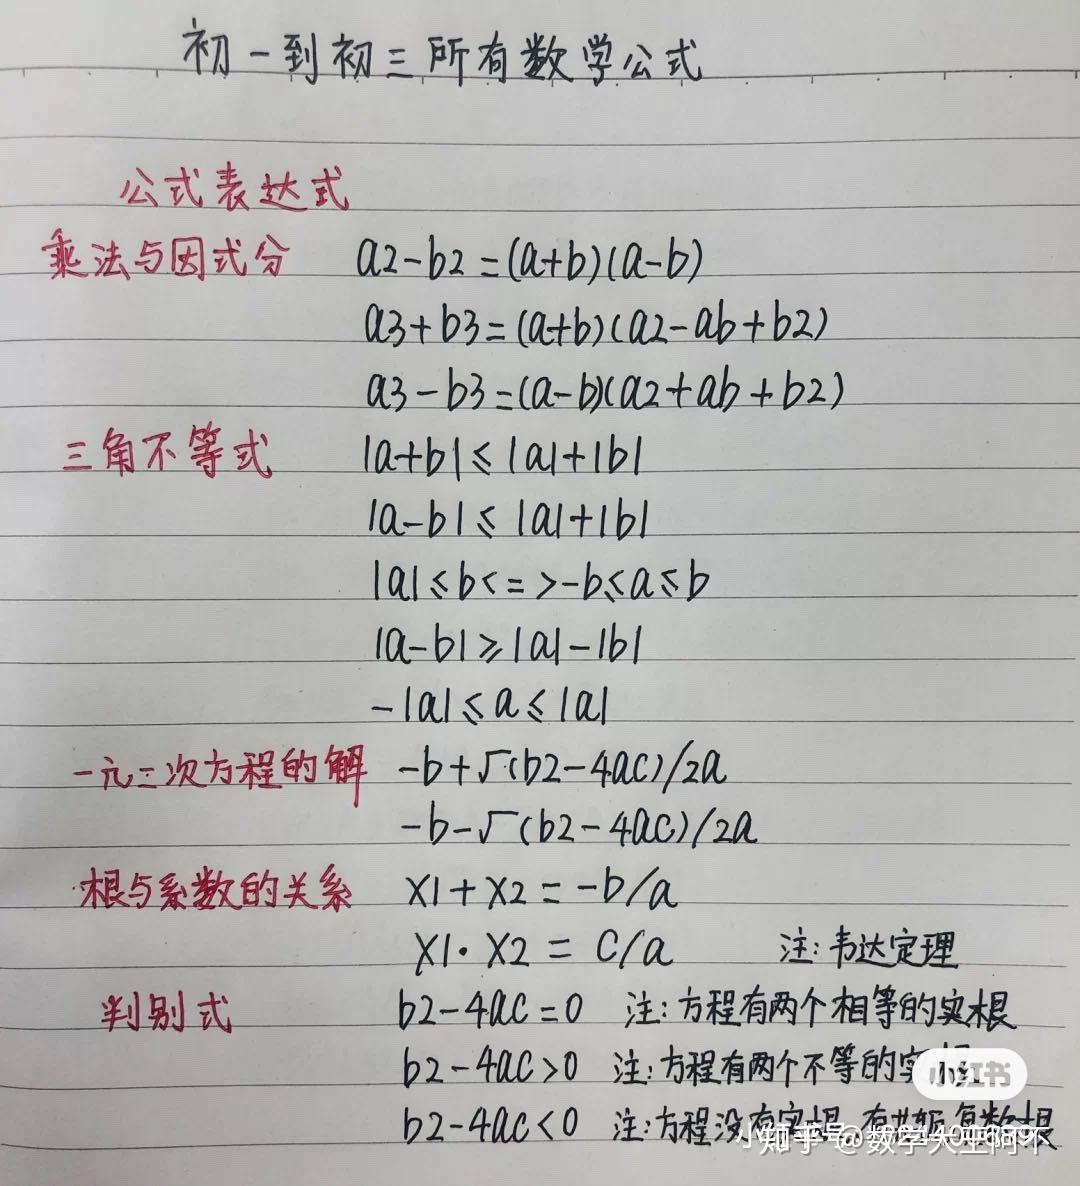 初一到初三所有数学公式
公式表达式
乘法与因式分 a2-b2=(a+b)(a-b)
a3+b3=(a+b)(a2-ab+b2)
a3-b3=(a-b)(a2+ab+b2)
三角不等式 |a+b|≤|a|+|b|
|a-b|≤|a|+|b|
|a|≤b<=>-b≤a≤b
|a-b|≥|a|-|b|
-|a|≤a≤|a|
一元二次方程的解 -b+√(b2-4ac)/2a
-b-√(b2-4ac)/2a
根与系数的关系 X1+X2=-b/a
X1·X2=C/a 注:韦达定理
判别式 b2-4ac=0 注:方程有两个相等的实根
b2-4ac>0 注:方程有两个不等的实
小红书
b2-4ac<0 注:方程没有实根,有共轭复数根
知乎 @数学大王阿不